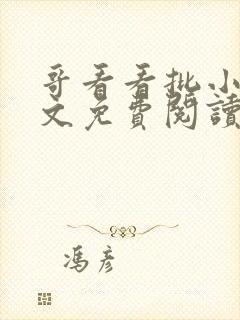 哥看看批小
文免費閱讀
馮彥